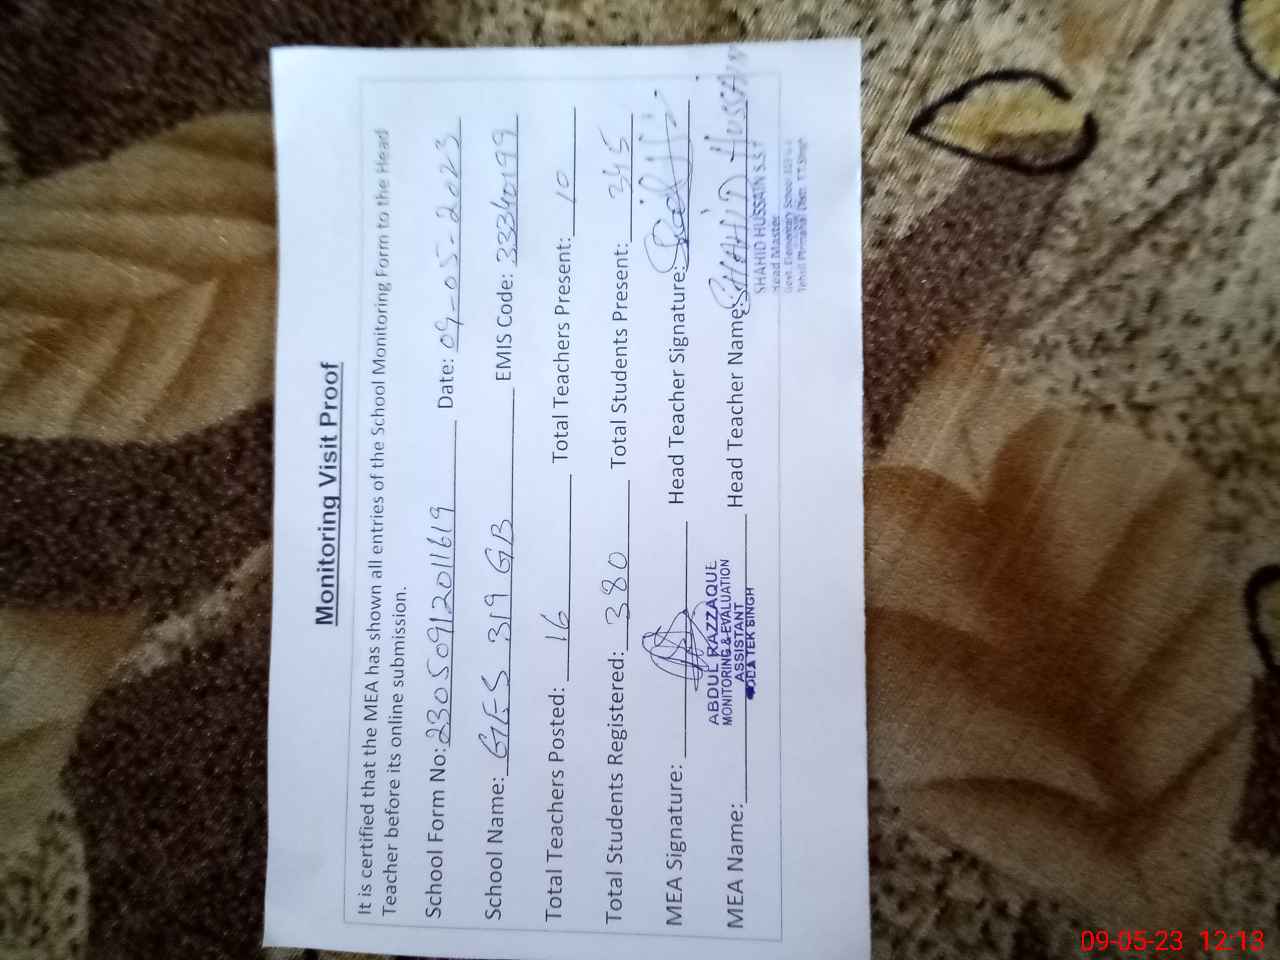 Monitoring Visit Proof
It is certified that the MEA has shown all entries of the School Monitoring Form to the Head
Teacher before its online submission.
School Form No: 23050912011619 Date: 09-05-2023
School Name: GES 319 GB EMIS Code: 33340199
Total Teachers Posted: 16 Total Teachers Present: 10
Total Students Registered: 380 Total Students Present: 345
MEA Signature: Head Teacher Signature:
ABDUL RAZZAQUE
MONITORING & EVALUATION
ASSISTANT
TEK SINGH
MEA Name: Head Teacher Name: SHAHID HUSSAIN
SHAHID HUSSAIN S.S.T
Head Master
Govt. Elementary School
09-05-23 12:13